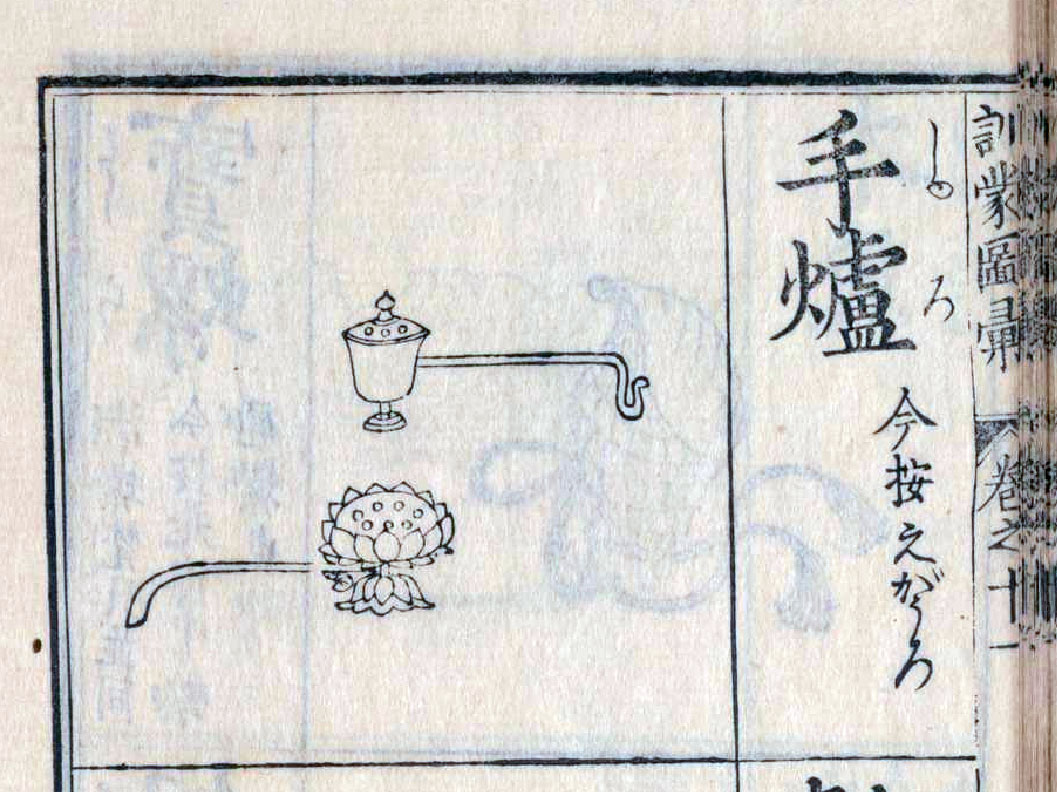 訓蒙圖彙 卷之十一
しゆろ
手爐
今按えがうろ